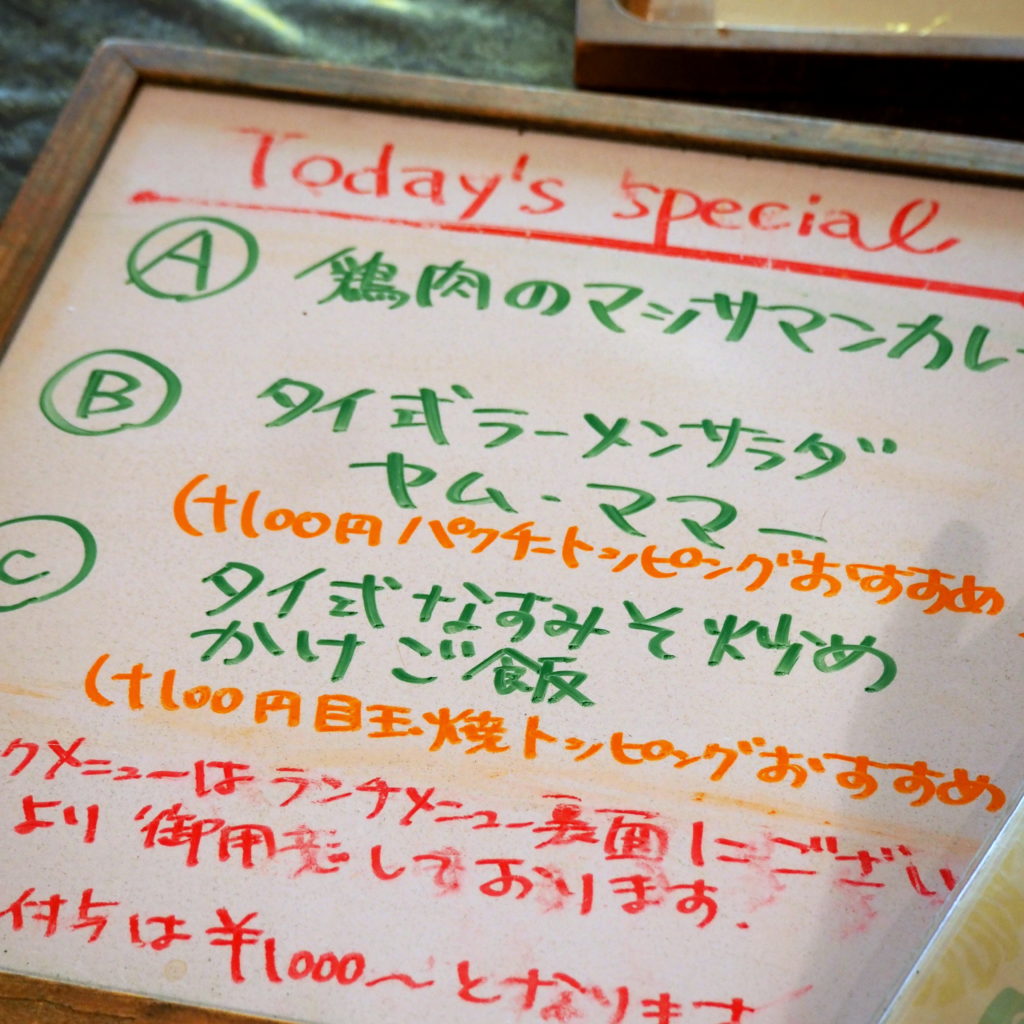 Today's special
A 鶏肉のマッサマンカレー
B タイ式ラーメンサラダ
ヤム・ママー
(+100円 パクチートッピングおすすめ
C タイ式なすみそ炒め
かけご飯
(+100円 目玉焼トッピングおすすめ
クメニューはランチメニュー裏面にござい
より御用意しております.
付与は¥1000～となります